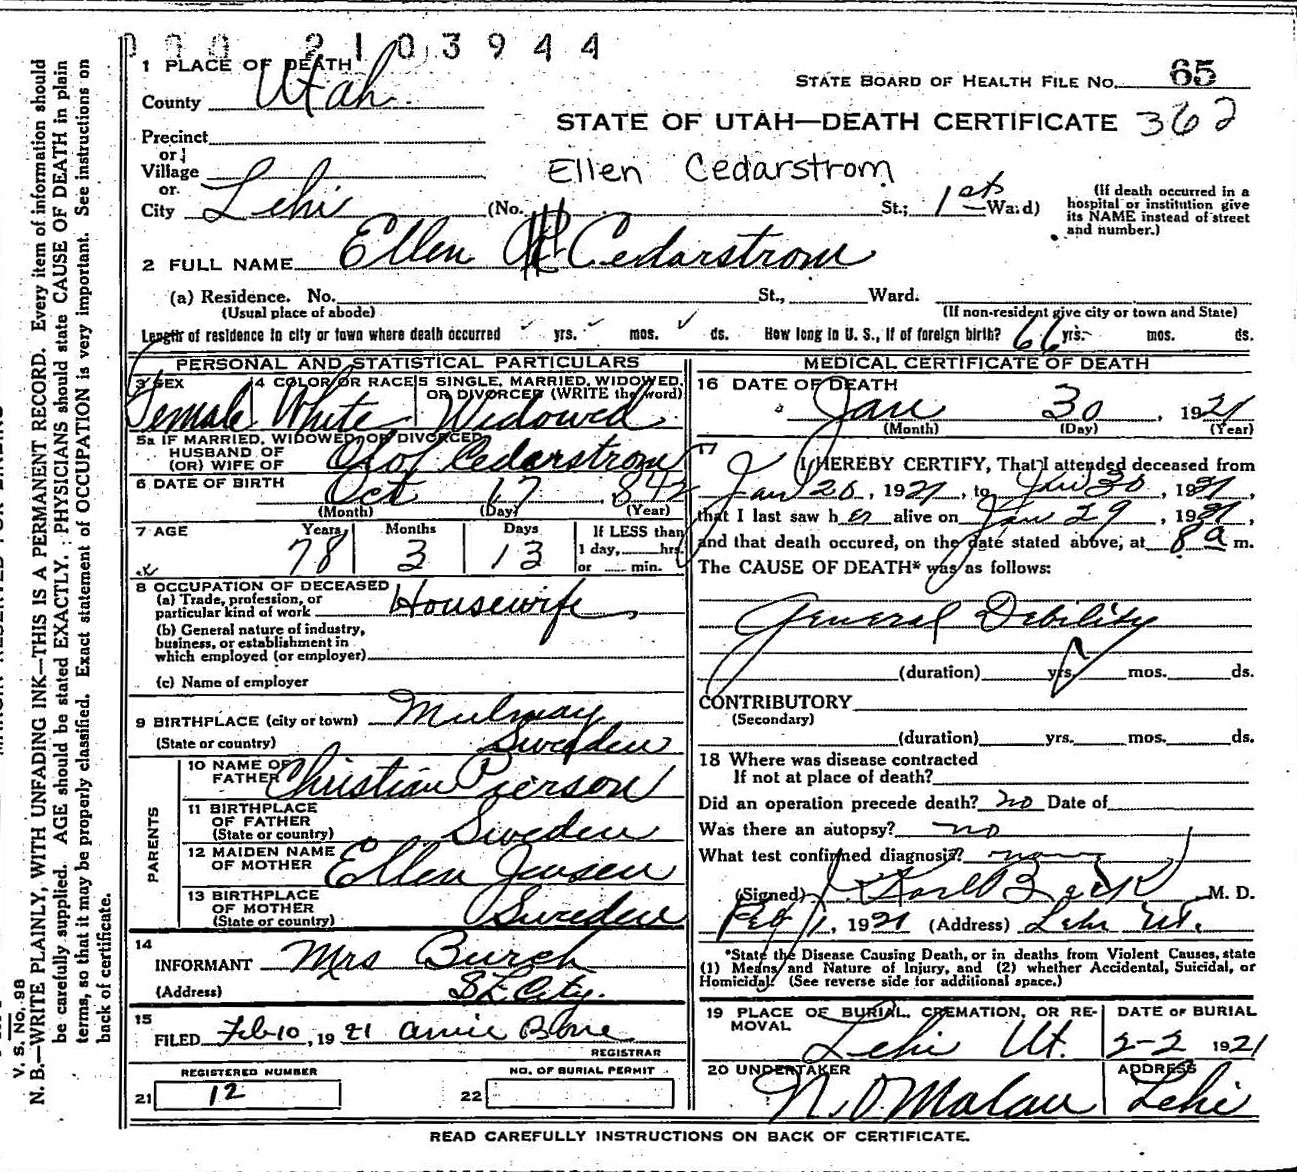 000 2103944
1 PLACE OF DEATH
County Utah
STATE BOARD OF HEALTH FILE NO. 65
STATE OF UTAH—DEATH CERTIFICATE 362
Precinct
or
Village
Ellen Cedarstrom
or
City Lehi (No. St.; 1st Ward)
(If death occurred in a hospital or institution give its NAME instead of street and number.)
2 FULL NAME Ellen Cedarstrom
(a) Residence. No. St., Ward.
(Usual place of abode) (If non-resident give city or town and State)
Length of residence in city or town where death occurred yrs. mos. ds. How long in U. S., if of foreign birth? 66 yrs. mos. ds.
PERSONAL AND STATISTICAL PARTICULARS
3 SEX 4 COLOR OR RACE 5 SINGLE, MARRIED, WIDOWED,
OR DIVORCED (WRITE the word)
Female White Widowed
5a IF MARRIED, WIDOWED, OR DIVORCED
HUSBAND OF
(OR) WIFE OF Olof Cedarstrom
6 DATE OF BIRTH Oct 17 842
(Month) (Day) (Year)
7 AGE Years Months Days If LESS than
78 3 13 1 day, hrs.
or min.
8 OCCUPATION OF DECEASED
(a) Trade, profession, or
particular kind of work Housewife
(b) General nature of industry,
business, or establishment in
which employed (or employer)
(c) Name of employer
9 BIRTHPLACE (city or town) Mulmay
(State or country) Sweden
PARENTS
10 NAME OF
FATHER Christian Pierson
11 BIRTHPLACE
OF FATHER
(State or country) Sweden
12 MAIDEN NAME
OF MOTHER Ellen Jensen
13 BIRTHPLACE
OF MOTHER
(State or country) Sweden
14
INFORMANT Mrs Burch
(Address) S L City.
15
FILED Feb 10, 1921 Annie Bone
REGISTRAR
REGISTERED NUMBER NO. OF BURIAL PERMIT
21 12 22
MEDICAL CERTIFICATE OF DEATH
16 DATE OF DEATH
Jan 30, 1921
(Month) (Day) (Year)
17 I HEREBY CERTIFY, That I attended deceased from
Jan 20, 1921, to Jan 30, 1921,
that I last saw her alive on Jan 29, 1921,
and that death occured, on the date stated above, at 8 a m.
The CAUSE OF DEATH* was as follows:
General Debility
(duration) yrs. mos. ds.
CONTRIBUTORY
(Secondary)
(duration) yrs. mos. ds.
18 Where was disease contracted
If not at place of death?
Did an operation precede death? no Date of
Was there an autopsy? no
What test confirmed diagnosis?
(Signed) M. D.
Feb 1, 1921 (Address) Lehi Ut.
*State the Disease Causing Death, or in deaths from Violent Causes, state
(1) Means and Nature of Injury, and (2) whether Accidental, Suicidal, or
Homicidal. (See reverse side for additional space.)
19 PLACE OF BURIAL, CREMATION, OR RE-
MOVAL DATE OF BURIAL
Lehi Ut. 2-2 1921
20 UNDERTAKER ADDRESS
Lehi
READ CAREFULLY INSTRUCTIONS ON BACK OF CERTIFICATE.
V. S. No. 98
N. B.—WRITE PLAINLY, WITH UNFADING INK—THIS IS A PERMANENT RECORD. Every item of information should
be carefully supplied. AGE should be stated EXACTLY. PHYSICIANS should state CAUSE OF DEATH in plain
terms, so that it may be properly classified. Exact statement of OCCUPATION is very important. See instructions on
back of certificate.